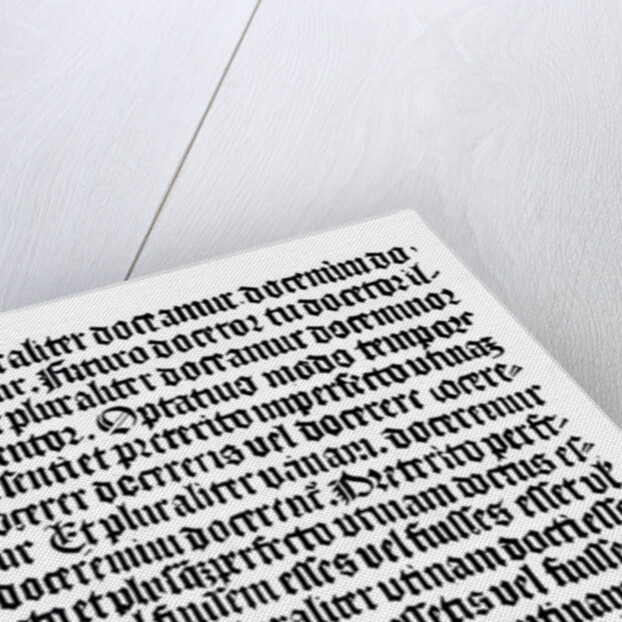 raliter doceamur docemini vo.
ur Futuro docetor tu docetor il-
pluraliter doceamur doceminor
entor. Optatiuo modo tempore
senti et preterito imperfecto vtinaz
ocerer docereris vel docerere docere=
ur Et pluraliter vtinam. doceremur
doceremini docerent᷑ Preterito perfe-
cto et plusqzperfecto vtinam doctus es=
vel fuissem esses vel fuisses esset vl
raliter vtinam docti esse
essetis vel fuisse
vtinam